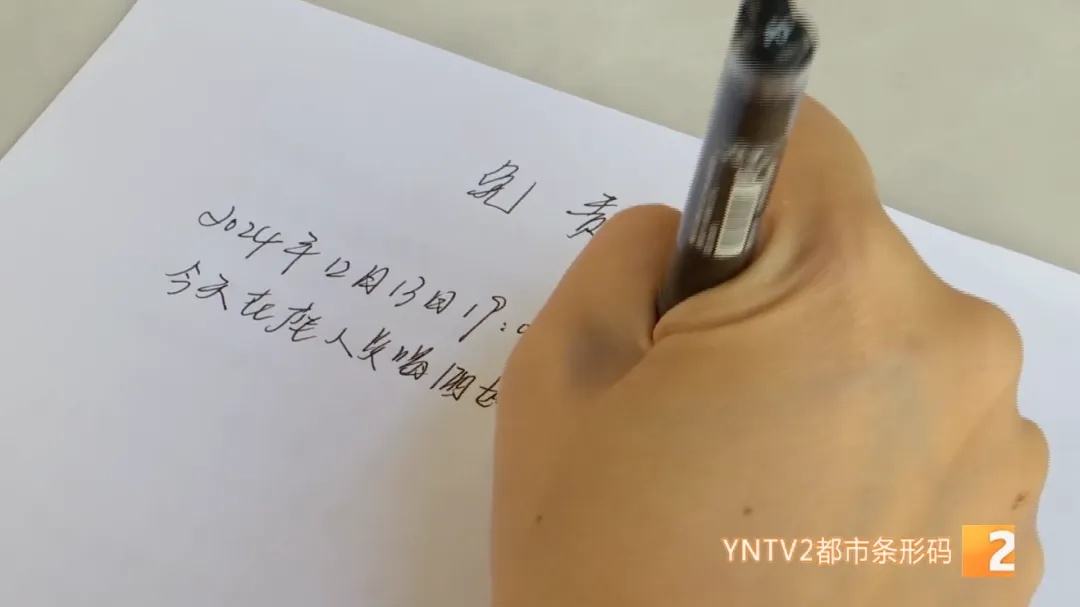 免责
2024年12月13日19:
今天在座人员喝酒
YNTV2都市条形码 2